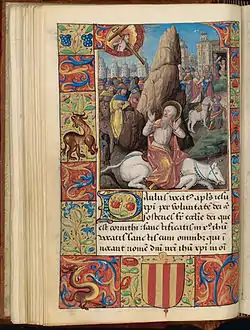 Paulus vocat apls iesu
xpi per voluntate dei
sostenes fr ecclie dei que
est corinthi sanctificatis in ihu
vocatis sanctis cum omnibus qui i
nvocant nome dni nri ihu xpi in oi